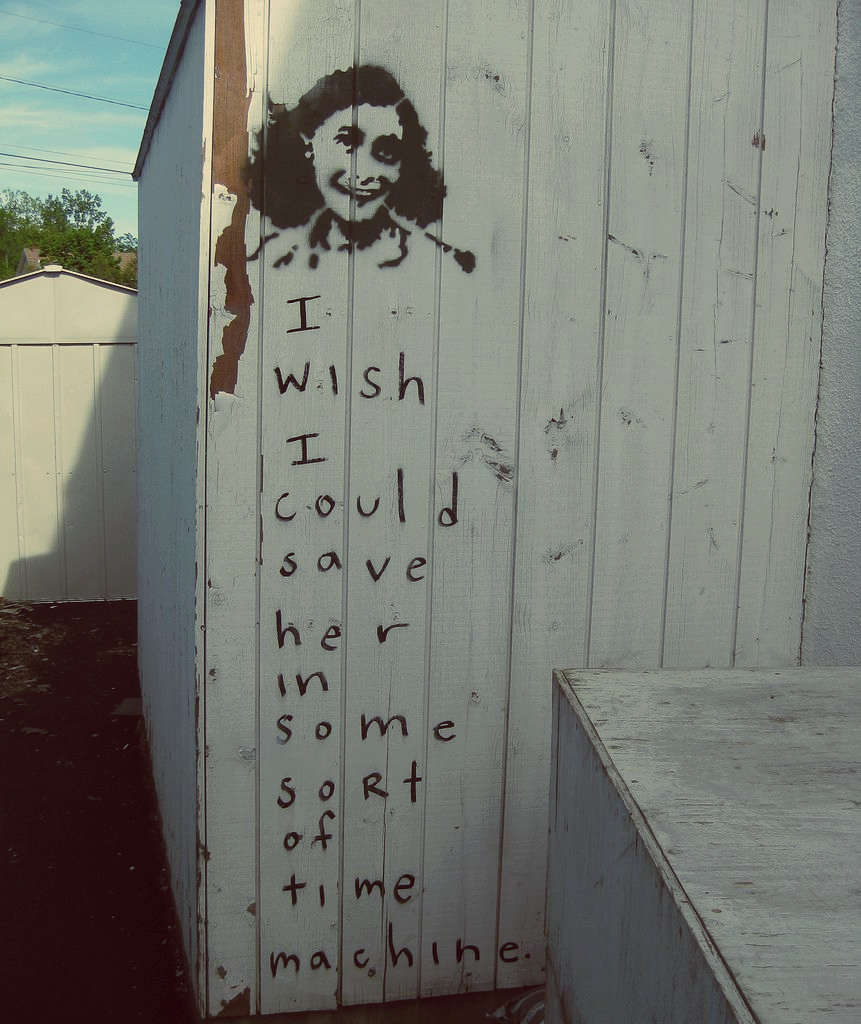 I
wish
I
could
save
her
in
some
soRt
of
time
machine.